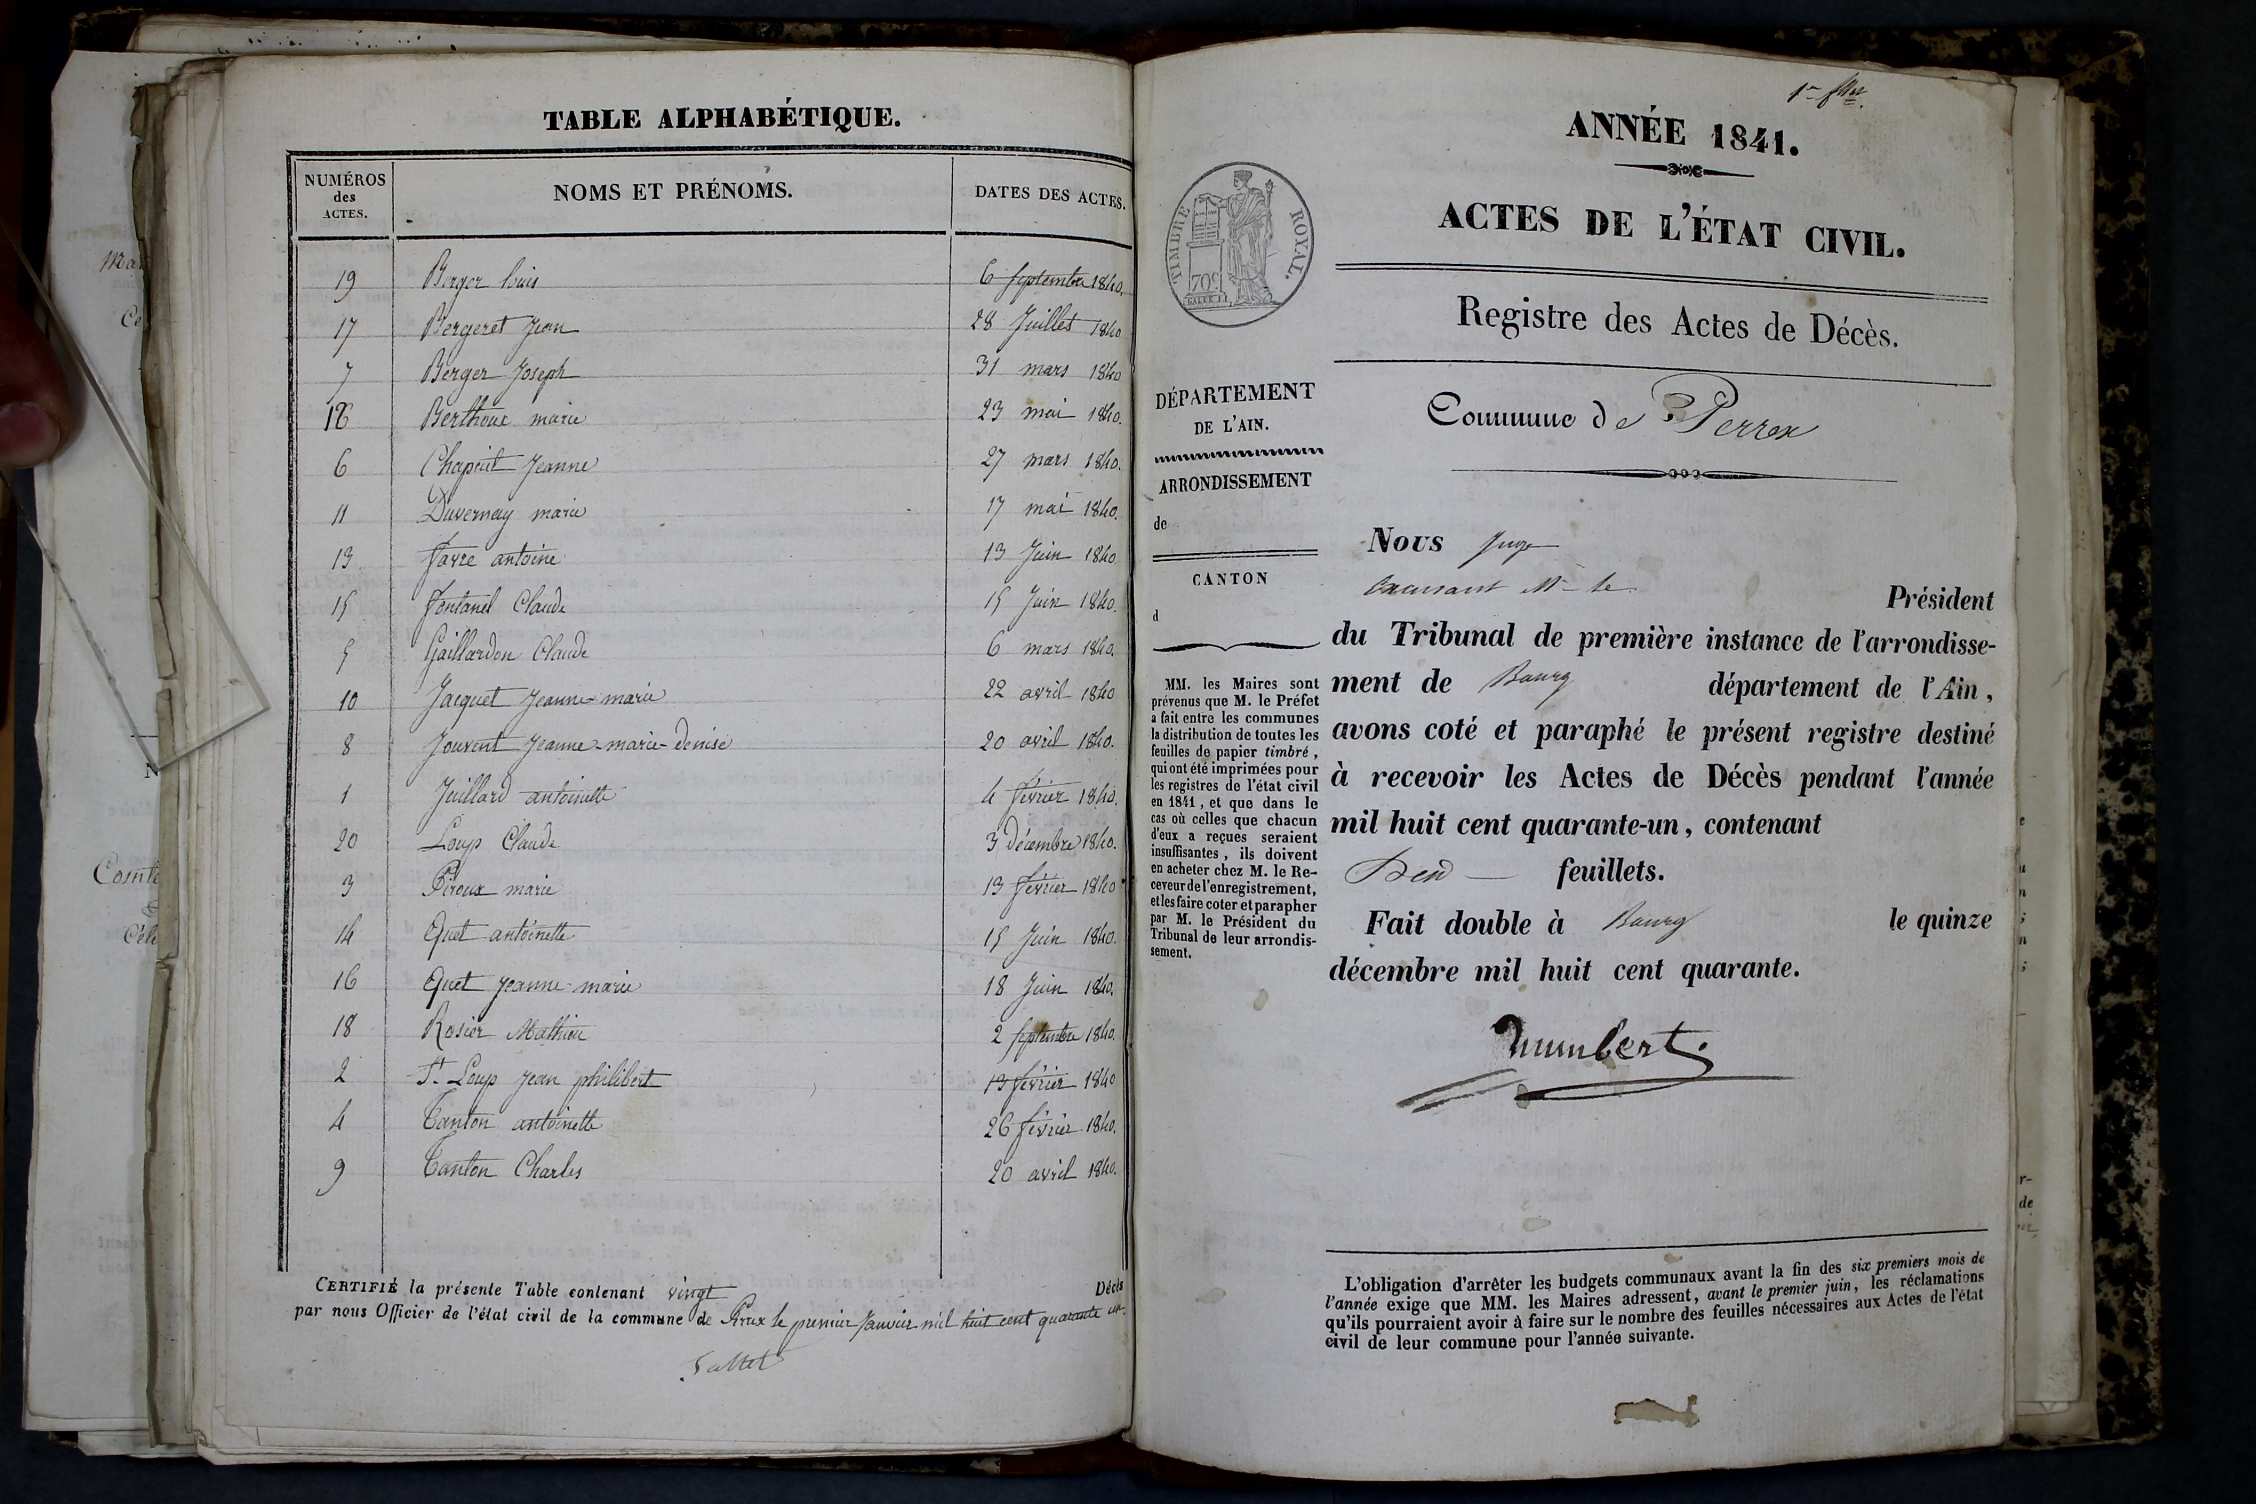 TABLE ALPHABÉTIQUE.
NUMÉROS des ACTES.
NOMS ET PRÉNOMS.
DATES DES ACTES.
19 Berger louis 6 septembre 1840.
17 Bergeret Jean 28 Juillet 1840
7 Berger Joseph 31 mars 1840
12 Berthoux marie 23 mai 1840.
6 Chapuit Jeanne 27 mars 1840.
11 Duvernay marie 17 mai 1840.
13 favre antoine 13 Juin 1840
15 fontanel Claude 15 Juin 1840.
5 Gaillardon Claude 6 mars 1840.
10 Jacquet Jeanne-marie 22 avril 1840
8 Jouvent Jeanne-marie-denise 20 avril 1840.
1 Juillard antoinette 4 février 1840.
20 Loup Claude 3 décembre 1840.
3 Piroux marie 13 février 1840
14 Quet antoinette 15 Juin 1840.
16 Quet Jeanne-marie 18 Juin 1840.
18 Rosier Mathieu 2 septembre 1840.
2 St. Loup Jean philibert 13 février 1840
4 Tanton antoinette 26 février 1840.
9 Tanton Charles 20 avril 1840.
CERTIFIÉ la présente Table contenant vingt Décès
par nous Officier de l'état civil de la commune de Perex le premier Janvier mil huit cent quarante un.
1er fllet
ANNÉE 1841.
ACTES DE L'ÉTAT CIVIL.
TIMBRE ROYAL.
70c
Registre des Actes de Décès.
Commune de Perrex
DÉPARTEMENT
DE L'AIN.
ARRONDISSEMENT
de
CANTON
d
MM. les Maires sont
prévenus que M. le Préfet
a fait entre les communes
la distribution de toutes les
feuilles de papier timbré,
qui ont été imprimées pour
les registres de l'état civil
en 1841, et que dans le
cas où celles que chacun
d'eux a reçues seraient
insuffisantes, ils doivent
en acheter chez M. le Re-
ceveur de l'enregistrement,
et les faire coter et parapher
par M. le Président du
Tribunal de leur arrondis-
sement.
Nous Juge
Mr le Président
du Tribunal de première instance de l'arrondisse-
ment de Bourg département de l'Ain,
avons coté et paraphé le présent registre destiné
à recevoir les Actes de Décès pendant l'année
mil huit cent quarante-un, contenant
feuillets.
Fait double à Bourg le quinze
décembre mil huit cent quarante.
Humbert.
L'obligation d'arrêter les budgets communaux avant la fin des six premiers mois de
l'année exige que MM. les Maires adressent, avant le premier juin, les réclamations
qu'ils pourraient avoir à faire sur le nombre des feuilles nécessaires aux Actes de l'état
civil de leur commune pour l'année suivante.